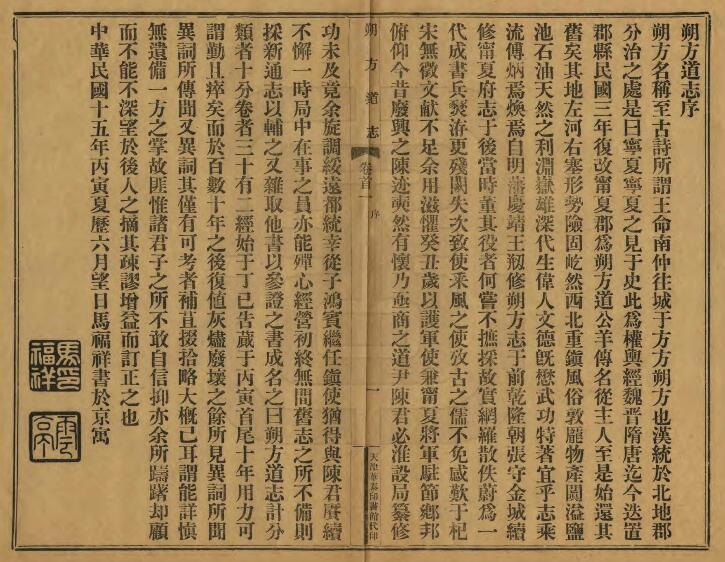 朔方道志序
朔方名稱至古詩所謂王命南仲往城于方方朔方也漢統於北地郡
分治之處是曰寧夏寧夏之見于史此爲權輿經魏晉隋唐迄今迭置
郡縣民國三年復改甯夏郡爲朔方道公羊傳名從主人至是始還其
舊矣其地左河右塞形勢險固屹然西北重鎭風俗敦龐物產闐溢鹽
池石油天然之利淵嶽雄深代生偉人文德旣懋武功特著宜乎志乘
流傳炳焉煥焉自明藩慶靖王㓞修朔方志于前乾隆朝張守金城續
修甯夏府志于後當時董其役者何嘗不摭採故實網羅散佚蔚爲一
代成書兵燹洊更殘闕失次致使釆風之使攷古之儒不免感歎于杞
宋無徵文獻不足余用滋懼癸丑歲以護軍使兼甯夏將軍駐節鄉邦
俯仰今昔廢興之陳迹奭然有懷乃亟商之道尹陳君必淮設局纂修
朔方道志
卷首一
序
一
天津華泰印書館代印
功未及竟余旋調綏遠都統幸從子鴻賓繼任鎭使猶得與陳君賡續
不懈一時局中在事之員亦能殫心經營初終無間舊志之所不備則
採新通志以輔之又雜取他書以參證之書成名之曰朔方道志計分
類者十分卷者三十有二經始于丁巳告蕆于丙寅首尾十年用力可
謂勤且瘁矣而於百數十年之後復値灰燼廢壞之餘所見異詞所聞
異詞所傳聞又異詞其僅有可考者補苴掇拾略大槪已耳謂能詳愼
無遺備一方之掌故匪惟諸君子之所不敢自信抑亦余所躊躇却顧
而不能不深望於後人之摘其疎謬增益而訂正之也
中華民國十五年丙寅夏歷六月望日馬福祥書於京寓
馬福祥印
雲亭